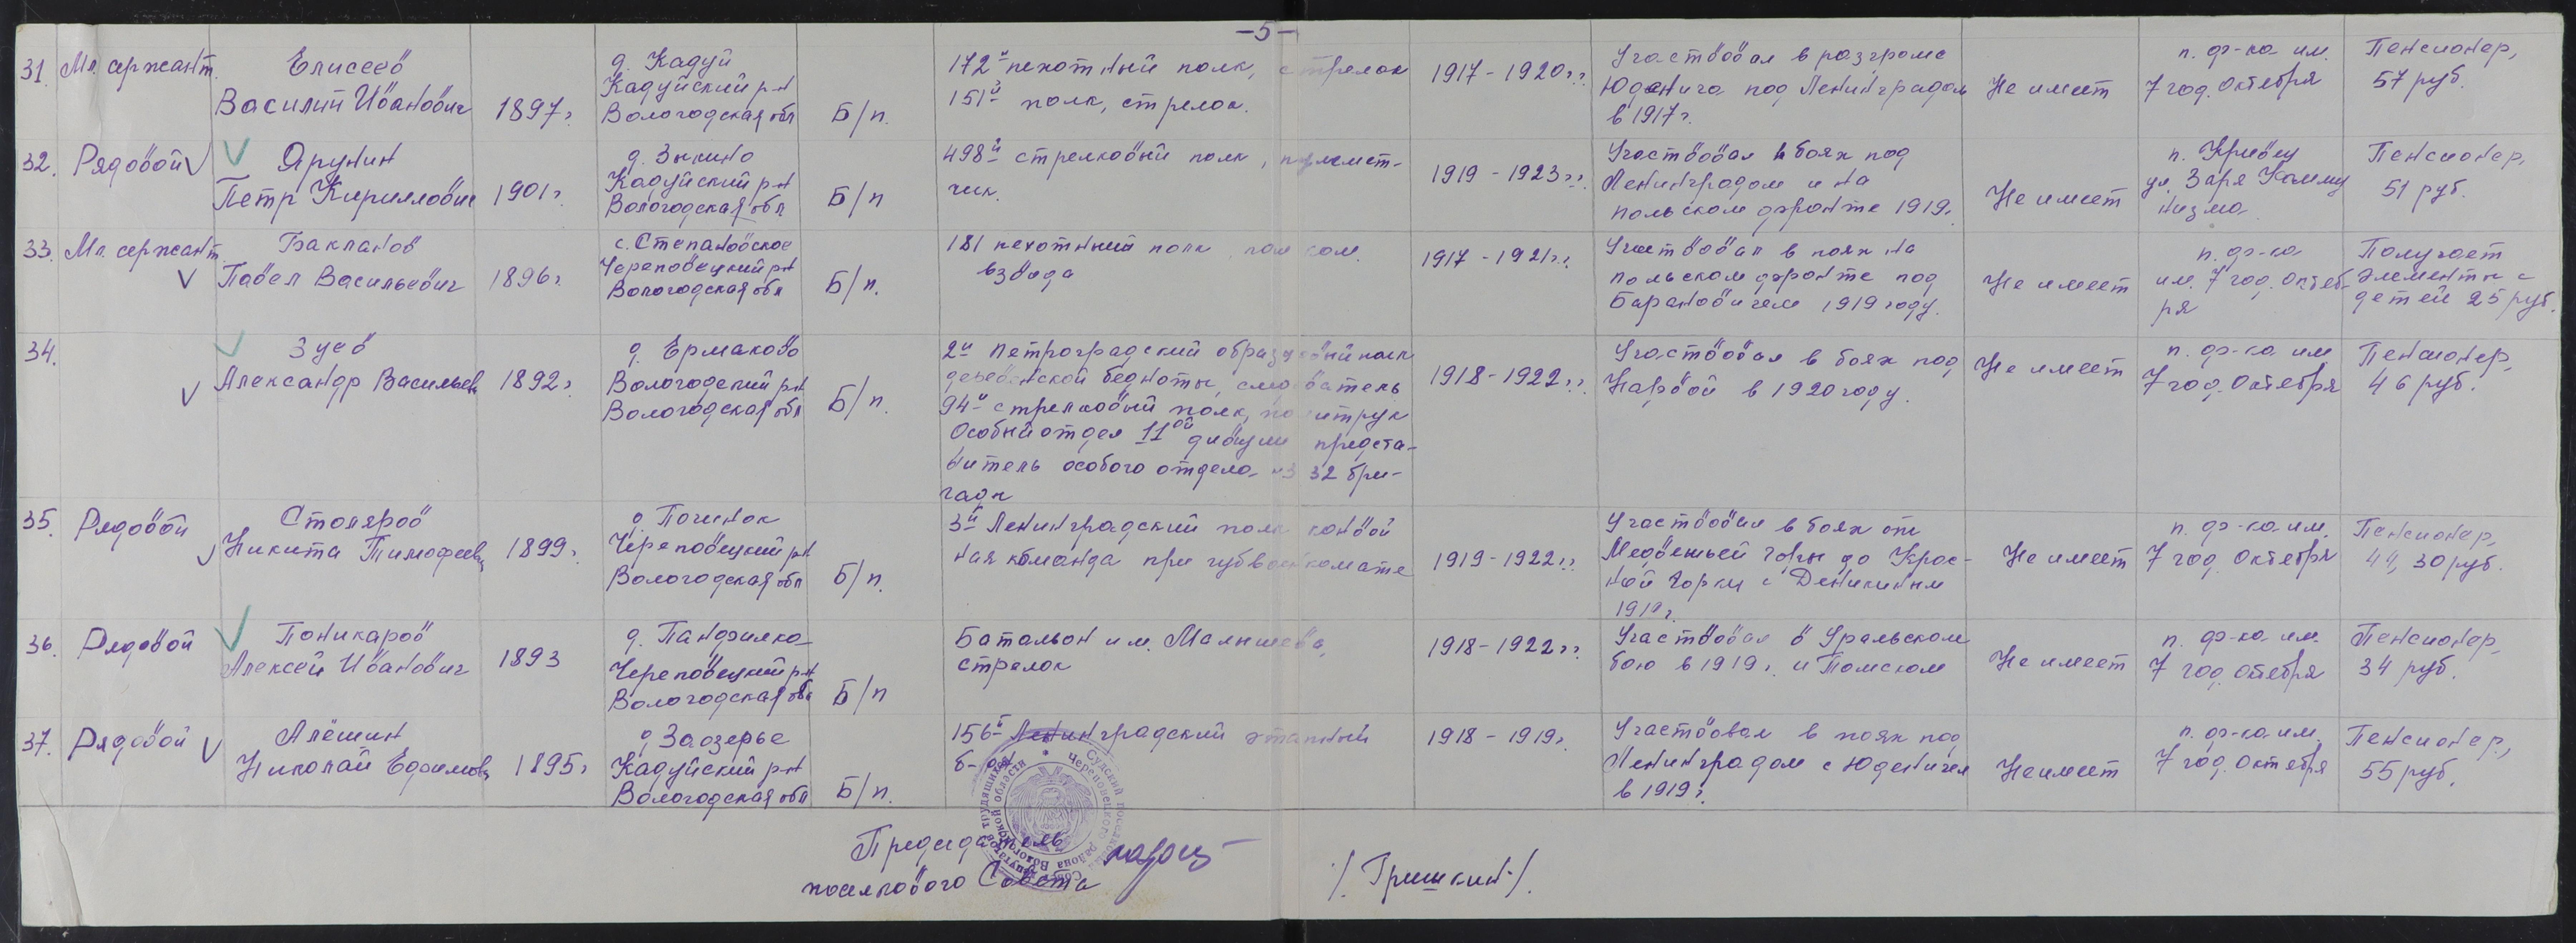 -5-
31. Мл. сержант. Елисеев Василий Иванович 1897г. д. Кадуй Кадуйский р-н Вологодская обл Б/п. 172й пехотный полк, стрелок 151й полк, стрелок. 1917-1920г.г. Участвовал в разгроме Юденича под Ленинградом в 1917г. Не имеет п. ф-ка им. 7 год. Октября Пенсионер, 57 руб.
32. Рядовой Ярунин Петр Кириллович 1901г. д. Зыкино Кадуйский р-н Вологодская обл Б/п 498й стрелковый полк, пулемет-чик. 1919-1923г.г. Участвовал в боях под Ленинградом и на польском фронте 1919г. Не имеет п. Кривец ул. Заря Коммунизма Пенсионер, 51 руб.
33. Мл. сержант. Бакланов Павел Васильевич 1896г. с. Степановское Череповецкий р-н Вологодская обл Б/п. 181 пехотный полк, пом ком. взвода 1917-1921г.г. Участвовал в боях на польском фронте под Барановичем 1919 году. Не имеет п. ф-ка им. 7 год. Октяб-ря Получает элементы с детей 25 руб.
34. Зуев Александр Васильев 1892г. д. Ермаково Вологодский р-н Вологодская обл Б/п. 2й Петроградский образцовый полк деревенской бедноты, 94й стрелковый полк, политрук Особый отдел 11ой дивизии предста-витель особого отдела из 32 бри-гады 1918-1922г.г. Участвовал в боях под Нарвой в 1920 году. Не имеет п. ф-ка им. 7 год. Октября Пенсионер, 46 руб.
35. Рядовой Столяров Никита Тимофеев 1899г. д. Починок Череповецкий р-н Вологодская обл Б/п. 3й Ленинградский полк конвой ная команда при губвоенкомате 1919-1922г.г. Участвовал в боях от Медвежьей горы до Крас-ной Горки с Деникиным 1919г. Не имеет п. ф-ка им. 7 год. Октября Пенсионер, 30 руб.
36. Рядовой Поникаров Алексей Иванович 1893 д. Панфилка Череповецкий р-н Вологодская обл Б/п Батальон им. Малышева, стрелок 1918-1922г.г. Участвовал в Уральском бою в 1919г. и Томском Не имеет п. ф-ка им. 7 год. Октября Пенсионер, 34 руб.
37. Рядовой Алёшин Николай Ефимов 1895г. д. Заозерье Кадуйский р-н Вологодская обл Б/п. 156й Ленинградский этапный б-он 1918-1919г. Участвовал в боях под Ленинградом с Юденичем в 1919г. Не имеет п. ф-ка им. 7 год. Октября Пенсионер, 55 руб.
Председатель
поселкового Совета /Гришкин/.